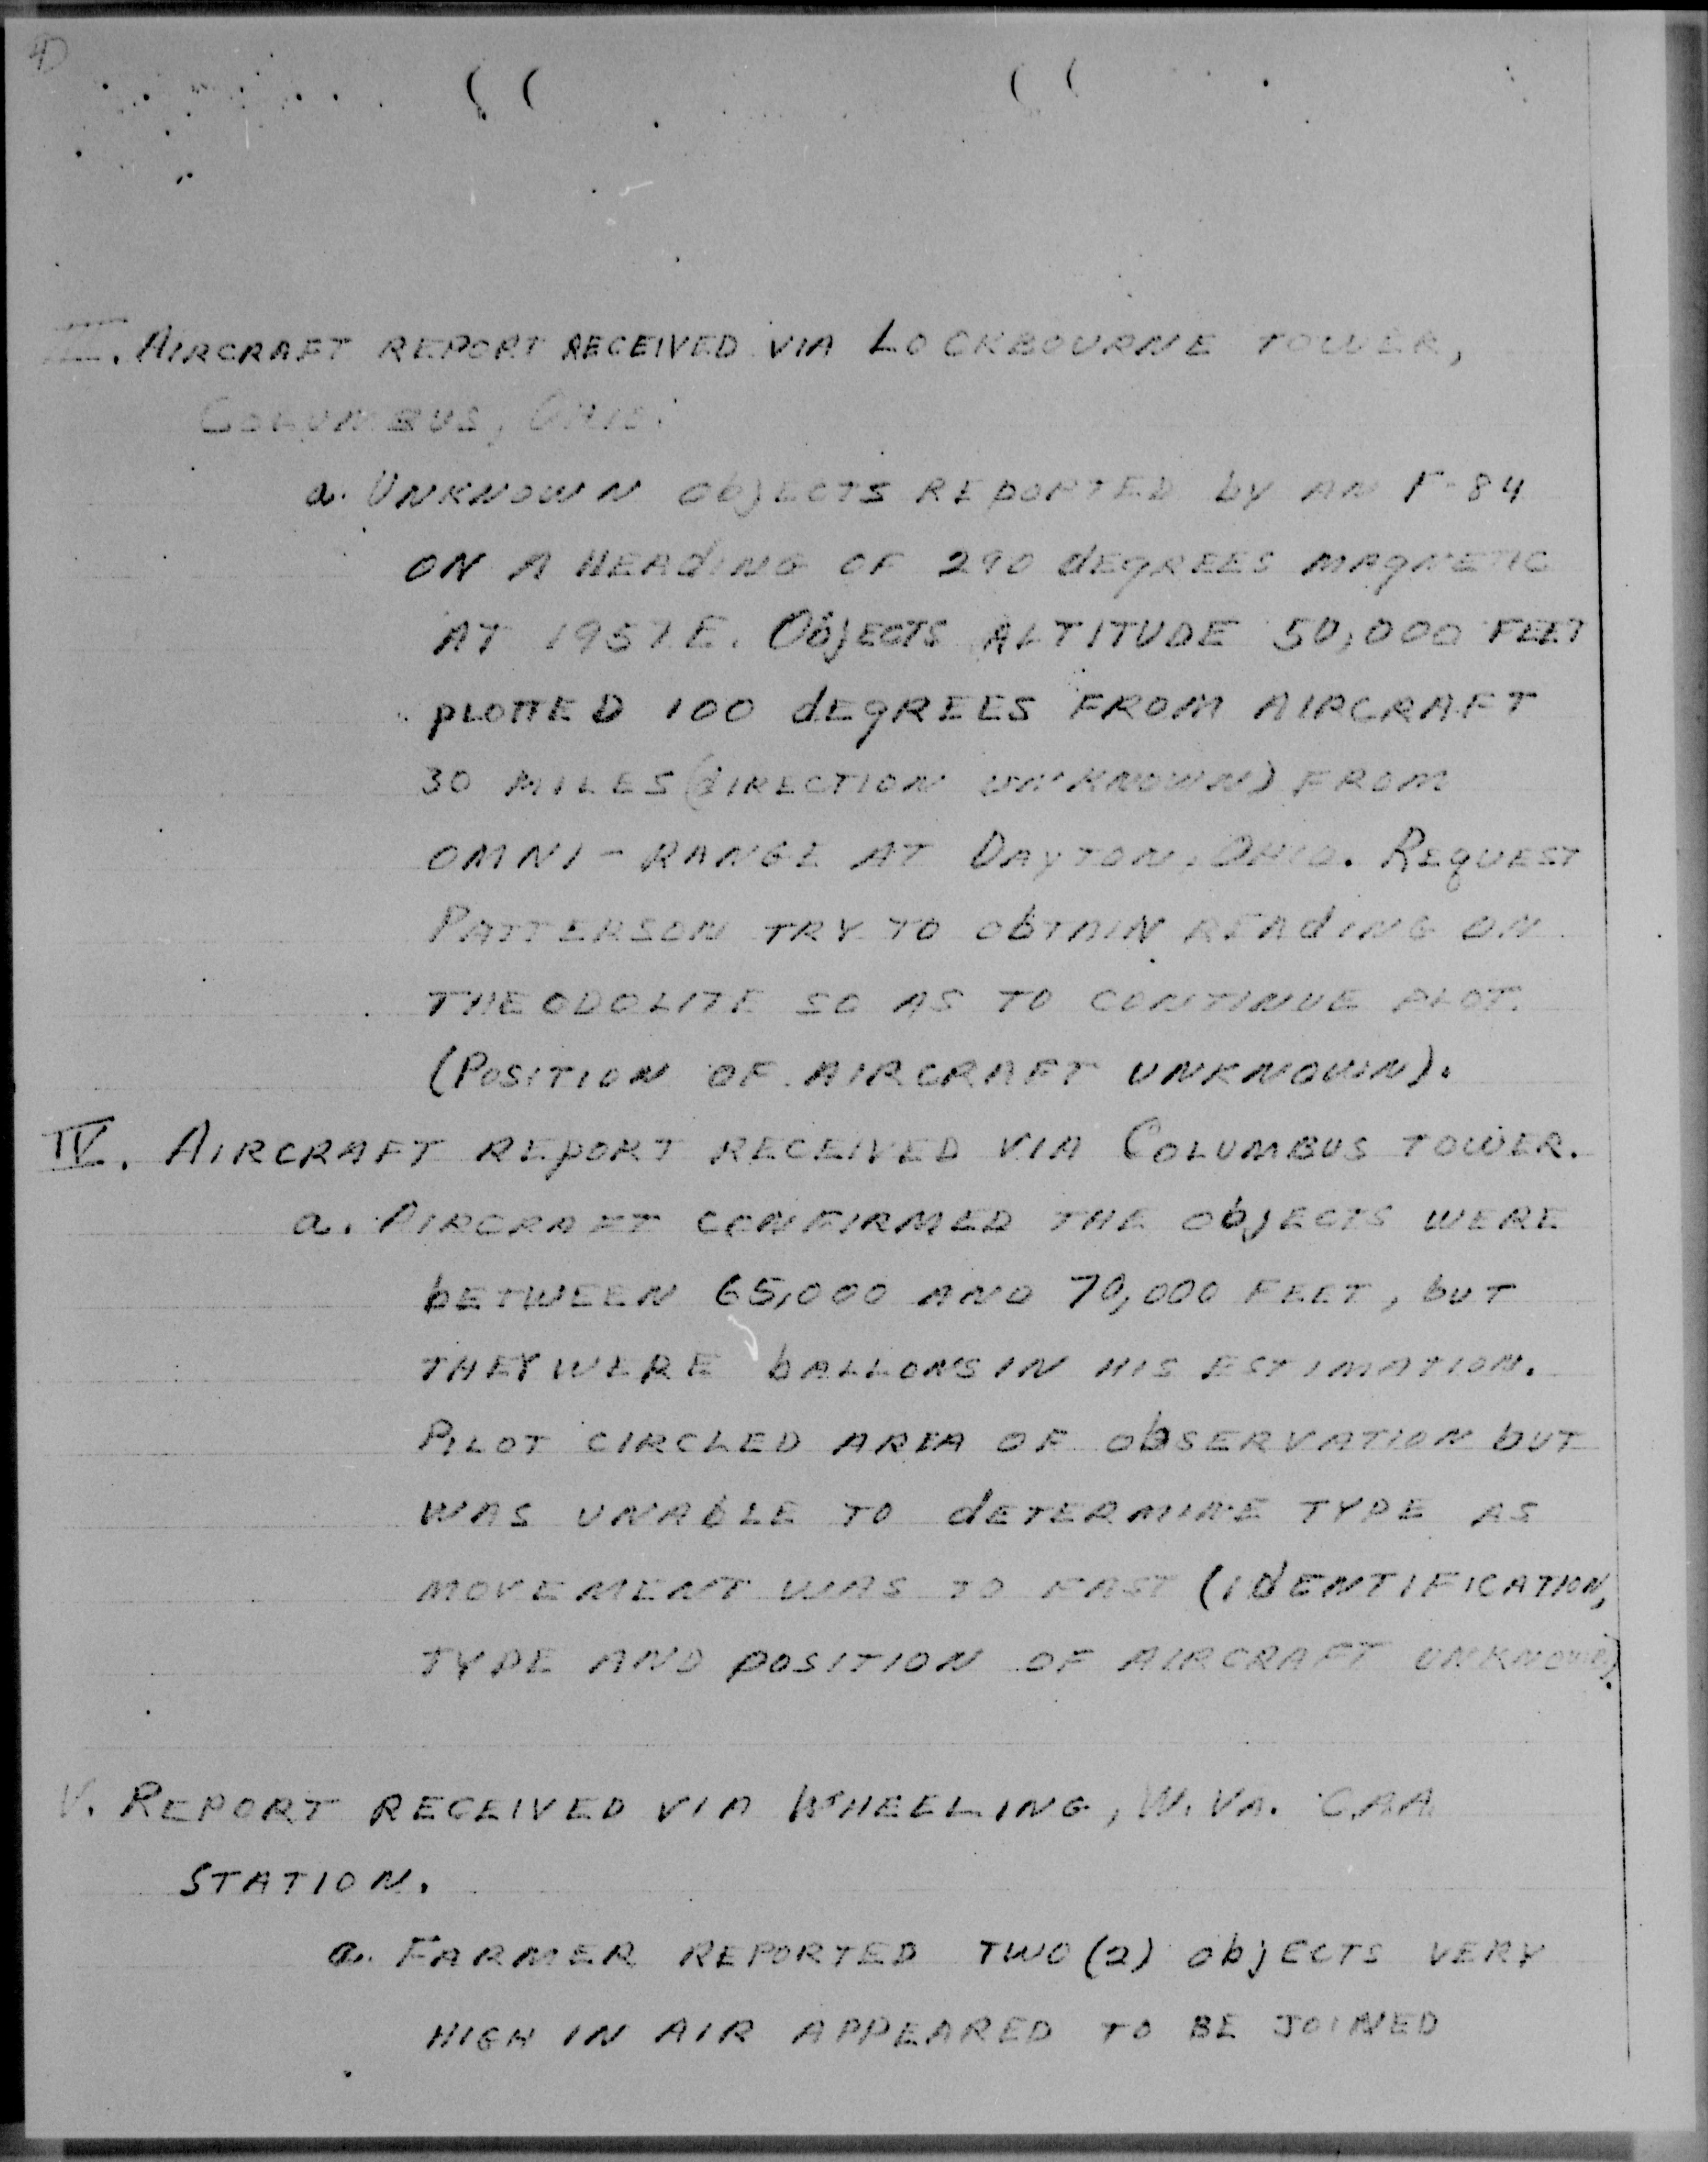 4)
III. AIRCRAFT REPORT RECEIVED VIA LOCKBOURNE TOWER,
COLUMBUS, OHIO.
a. UNKNOWN ObjECTS REpORTED by AN F-84
ON A HEAdING OF 290 dEgREES MAgNETIC
AT 1957E. ObjECTS ALTITUDE 50,000 FEET
pLOTTED 100 dEgREES FROM AIRCRAFT
30 MILES (dIRECTION UNKNOWN) FROM
OMNI-RANGE AT DAyTON, OHIO. REqUEST
PATTERSON TRY TO ObTAIN REAdING ON
THEODOLITE SO AS TO CONTINUE PLOT.
(POSITION OF AIRCRAFT UNKNOWN).
IV. AIRCRAFT REpORT RECEIVED VIA COLUMBUS TOWER.
a. AIRCRAFT CONFIRMED THE ObjECTS WERE
bETWEEN 65,000 AND 70,000 FEET, bUT
THEY WERE bALLONS IN HIS ESTIMATION.
PILOT CIRCLED AREA OF ObSERVATION bUT
WAS UNAbLE TO dETERMINE TYPE AS
MOVEMENT WAS TO FAST (IdENTIFICATION,
TYPE AND pOSITION OF AIRCRAFT UNKNOWN).
V. REPORT RECEIVED VIA WHEELING, W. VA. CAA
STATION.
a. FARMER REPORTED TWO (2) ObjECTS VERY
HIGH IN AIR APPEARED TO BE JOINED